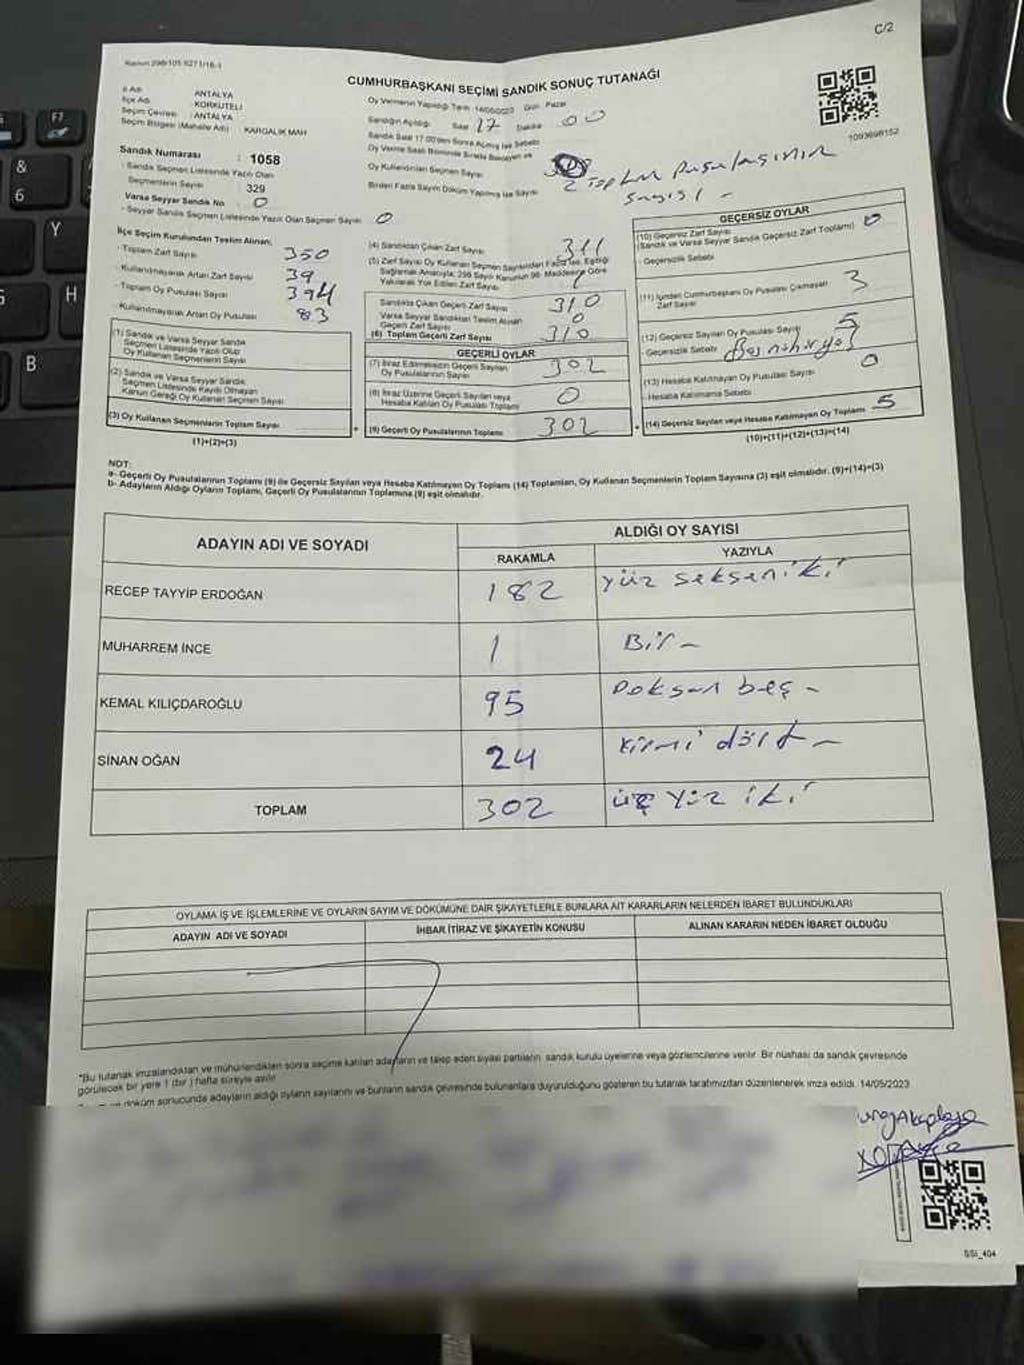 C/2
CUMHURBAŞKANI SEÇİMİ SANDIK SONUÇ TUTANAĞI
İl Adı ANTALYA
İlçe Adı : KORKUTELİ
Seçim Çevresi : ANTALYA
Seçim Bölgesi (Mahalle Adı) : KARGALIK MAH
Sandık Numarası : 1058
- Sandık Seçmen Listesinde Yazılı Olan
Seçmenlerin Sayısı 329
Varsa Seyyar Sandık No : 0
- Seyyar Sandık Seçmen Listesinde Yazılı Olan Seçmen Sayısı 0
Oy Vermenin Yapıldığı Tarih: 14/05/2023 Gün: Pazar
Sandığın Açıldığı: Saat 17 Dakika 00
Sandık Saat 17.00'den Sonra Açılmış İse Sebebi:
Oy Kullandırılan Seçmen Sayısı
Birden Fazla Sayım Döküm Yapılmış İse Sayısı 2 Toplam Pusulasının
sayısı -
1093698152
İlçe Seçim Kurulundan Teslim Alınan;
- Toplam Zarf Sayısı 350
- Kullanılmayarak Artan Zarf Sayısı 39
- Toplam Oy Pusulası Sayısı 394
- Kullanılmayarak Artan Oy Pusulası 83
(1) Sandık ve Varsa Seyyar Sandık
Seçmen Listesinde Yazılı Olup
Oy Kullanan Seçmenlerin Sayısı
(2) Sandık ve Varsa Seyyar Sandık
Seçmen Listesinde Kayıtlı Olmayan
Kanun Gereği Oy Kullanan Seçmen Sayısı
(3) Oy Kullanan Seçmenlerin Toplam Sayısı
(1)+(2)=(3)
(4) Sandıktan Çıkan Zarf Sayısı 311
(5) Zarf Sayısı Oy Kullanan Seçmen Sayısından Fazla İse, Eşitliği
Sağlamak Amacıyla; 298 Sayılı Kanunun 98. Maddesine Göre
Yakılarak Yok Edilen Zarf Sayısı 1
Sandıkta Çıkan Geçerli Zarf Sayısı 310
Varsa Seyyar Sandıktan Teslim Alınan
Geçerli Zarf Sayısı 0
(6) Toplam Geçerli Zarf Sayısı 310
GEÇERLİ OYLAR
(7) İtiraz Edilmeksizin Geçerli Sayılan
Oy Pusulalarının Sayısı 302
(8) İtiraz Üzerine Geçerli Sayılan veya
Hesaba Katılan Oy Pusulaları Toplamı 0
(9) Geçerli Oy Pusulalarının Toplamı 302
GEÇERSİZ OYLAR
(10) Geçersiz Zarf Sayısı
(Sandık ve Varsa Seyyar Sandık Geçersiz Zarf Toplamı) 0
- Geçersizlik Sebebi
(11) İçinden Cumhurbaşkanı Oy Pusulası Çıkmayan
Zarf Sayısı 3
(12) Geçersiz Sayılan Oy Pusulası Sayısı 5
- Geçersizlik Sebebi
(13) Hesaba Katılmayan Oy Pusulası Sayısı 0
- Hesaba Katılmama Sebebi
(14) Geçersiz Sayılan veya Hesaba Katılmayan Oy Toplamı 5
(10)+(11)+(12)+(13)=(14)
NOT:
a- Geçerli Oy Pusulalarının Toplamı (9) ile Geçersiz Sayılan veya Hesaba Katılmayan Oy Toplamı (14) Toplamları, Oy Kullanan Seçmenlerin Toplam Sayısına (3) eşit olmalıdır. (9)+(14)=(3)
b- Adayların Aldığı Oyların Toplamı, Geçerli Oy Pusulalarının Toplamına (9) eşit olmalıdır.
ADAYIN ADI VE SOYADI ALDIĞI OY SAYISI
RAKAMLA YAZIYLA
RECEP TAYYİP ERDOĞAN 182 yüz seksen iki
MUHARREM İNCE 1 Bir -
KEMAL KILIÇDAROĞLU 95 Doksan beş -
SİNAN OĞAN 24 yirmi dört -
TOPLAM 302 üç yüz iki
OYLAMA İŞ VE İŞLEMLERİNE VE OYLARIN SAYIM VE DÖKÜMÜNE DAİR ŞİKAYETLERLE BUNLARA AİT KARARLARIN NELERDEN İBARET BULUNDUKLARI
ADAYIN ADI VE SOYADI İHBAR İTİRAZ VE ŞİKAYETİN KONUSU ALINAN KARARIN NEDEN İBARET OLDUĞU
*Bu tutanak imzalandıktan ve mühürlendikten sonra seçime katılan adayların ve talep eden siyasi partilerin sandık kurulu üyelerine veya gözlemcilerine verilir. Bir nüshası da sandık çevresinde
görülecek bir yere 1 (bir) hafta süreyle asılır.
döküm sonucunda adayların aldığı oyların sayılarını ve bunların sandık çevresinde bulunanlara duyurulduğunu gösteren bu tutanak tarafımızdan düzenlenerek imza edildi. 14/05/2023
SSİ_404